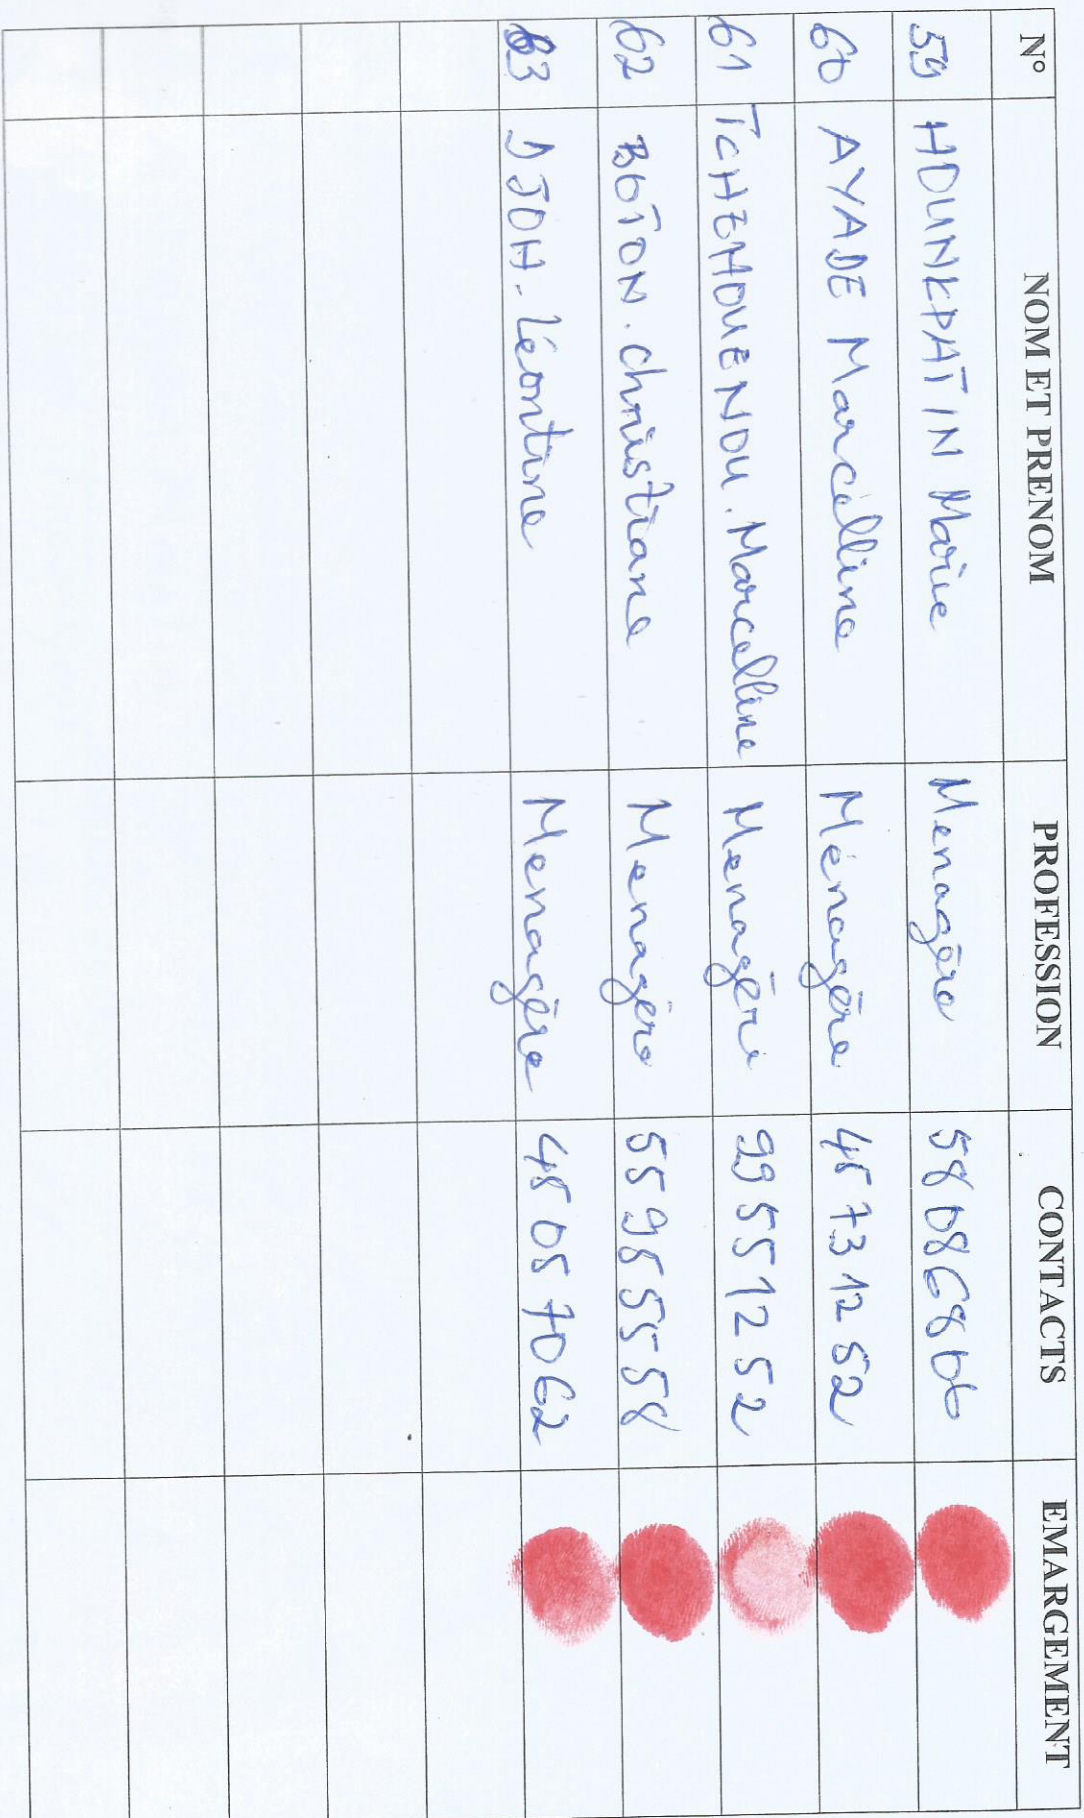 N° NOM ET PRENOM PROFESSION CONTACTS EMARGEMENT
59 HOUNKPATIN Marie Menagère 58086800
60 AYADE Marcelline Ménagère 45731252
61 TCHEHOUENOU. Marcelline Menagère 99551252
62 BOTON. Christiane Menagère 55985558
63 DJOH-Léontine Menagère 48057062